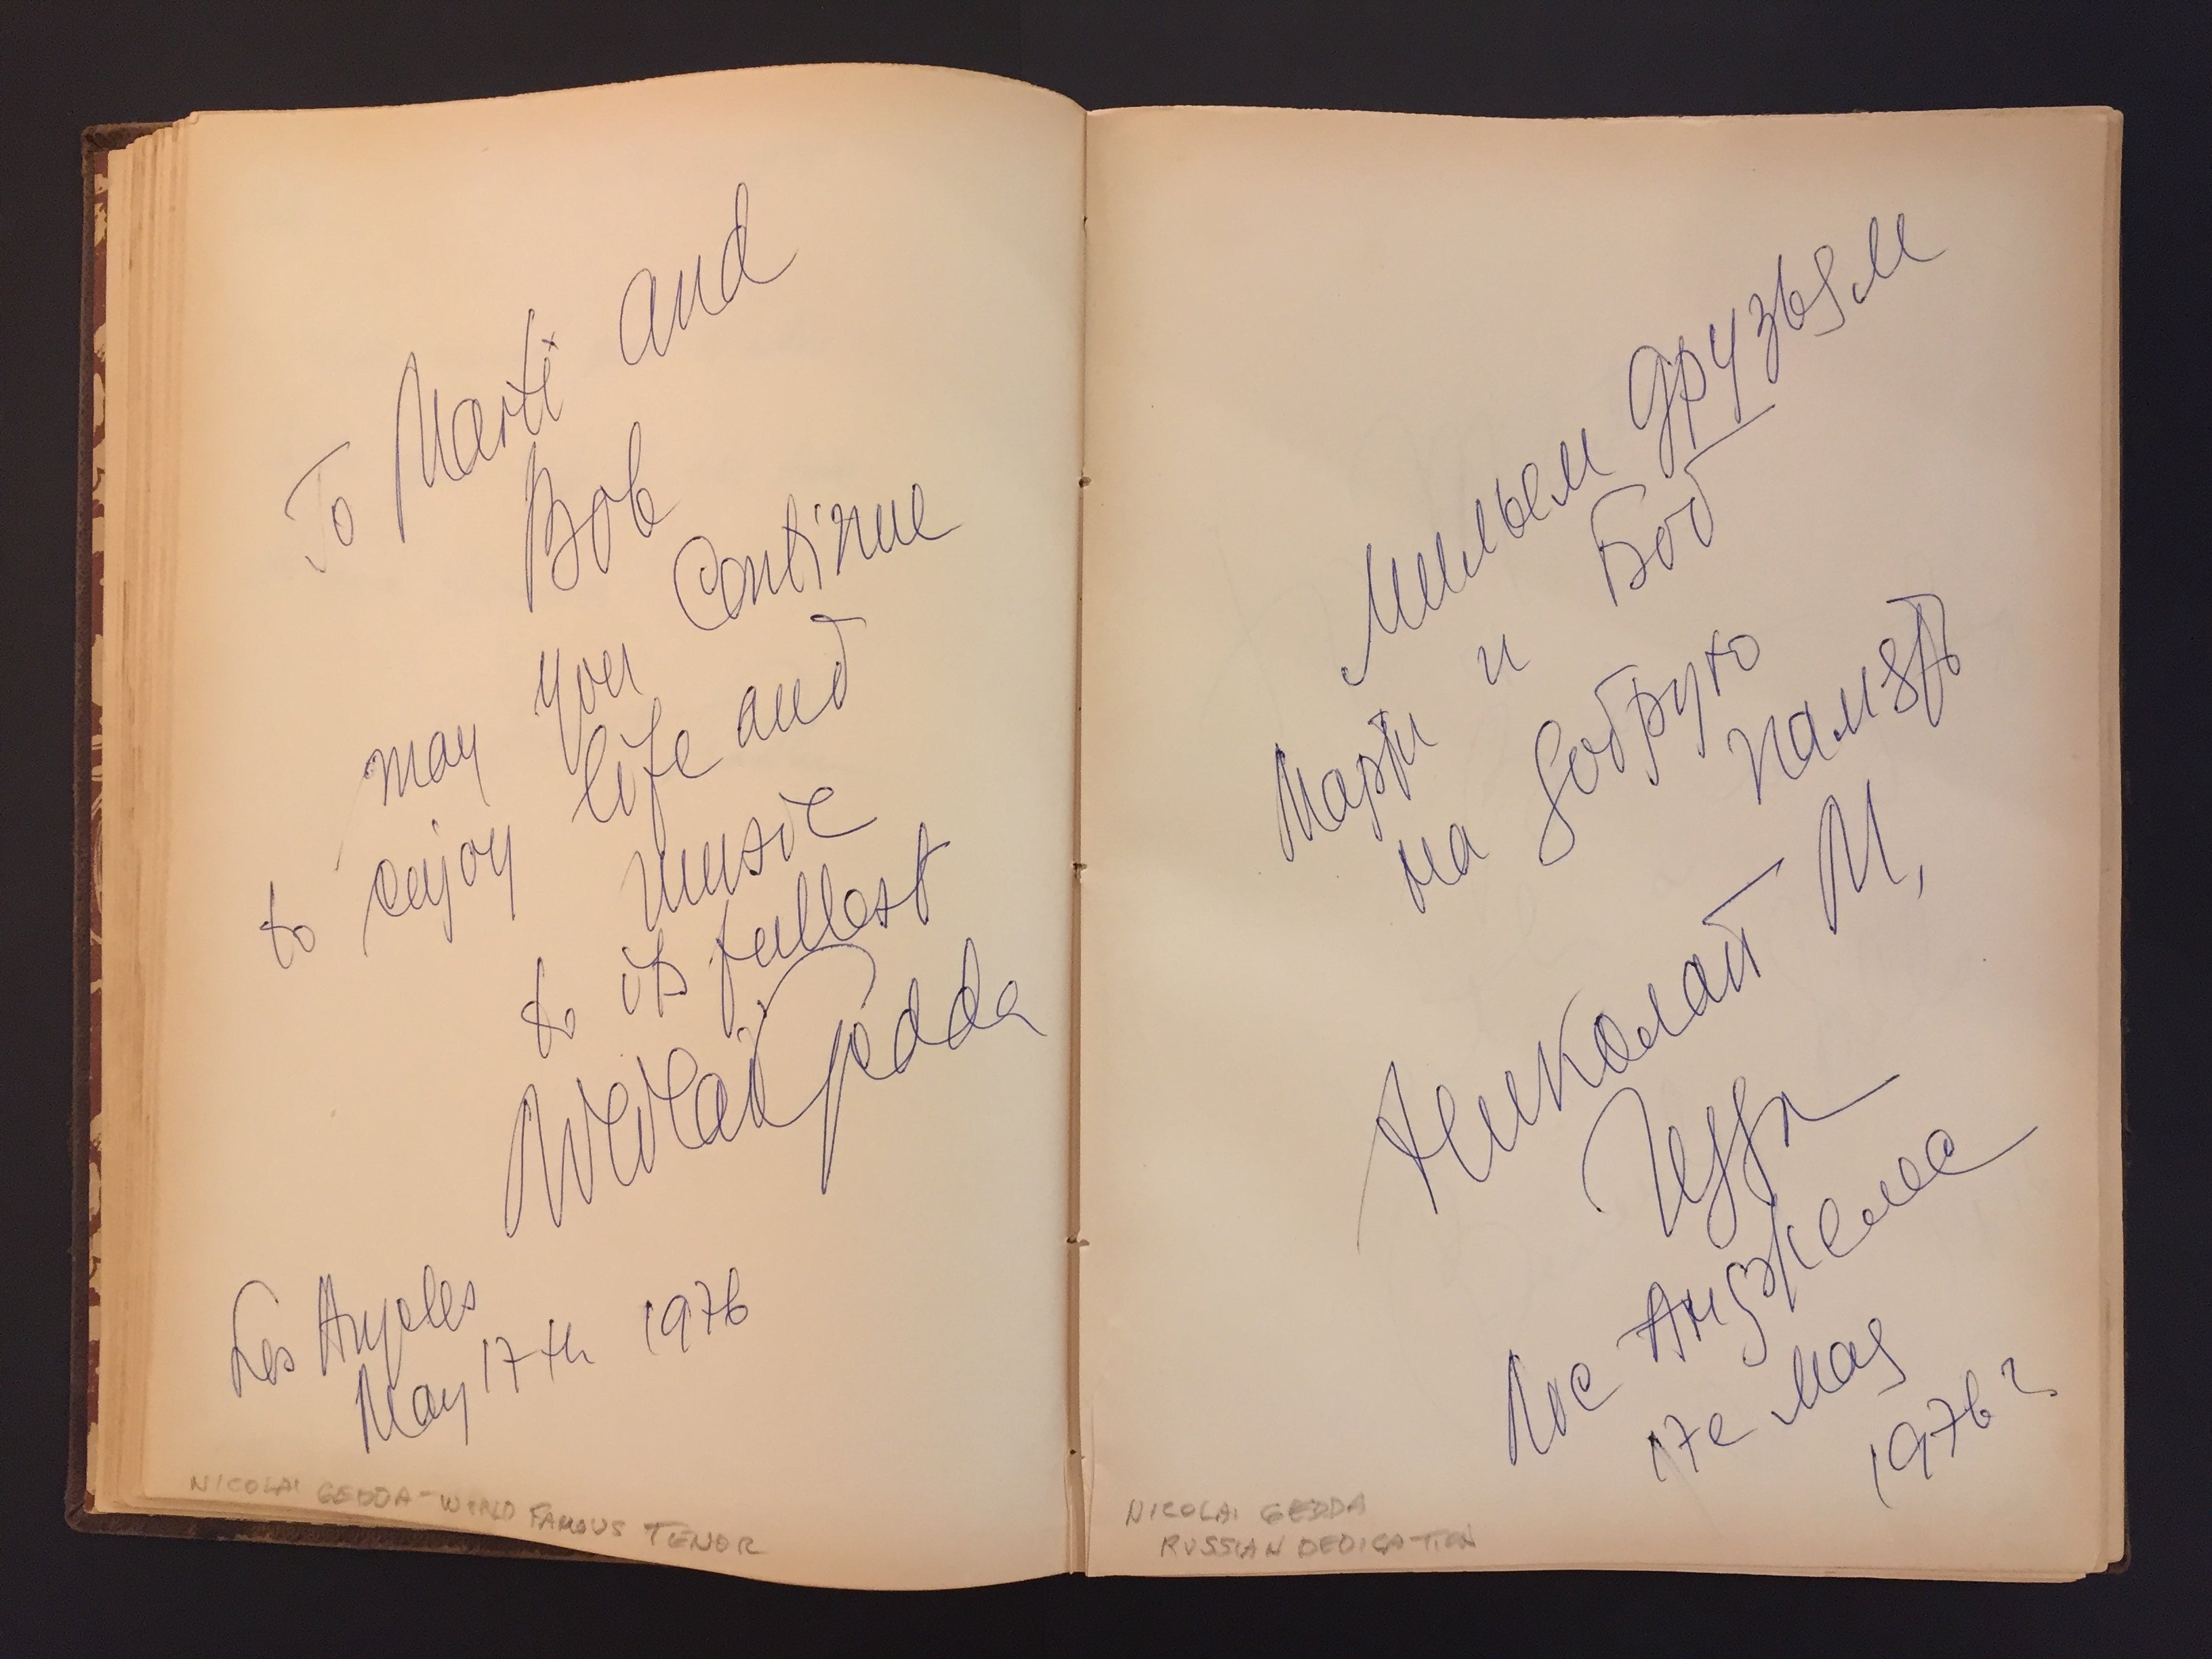 To Marti and
Bob
may you continue
to enjoy life and
music
to its fullest
Nicolai Gedda
Los Angeles
May 17th 1976
NICOLAI GEDDA - WORLD FAMOUS TENOR
Милым друзьям
Марти и Боб
на добрую
память
Николай М.
Гедда
Лос Анджелос
17е мая
1976 г.
NICOLAI GEDDA
RUSSIAN DEDICATION